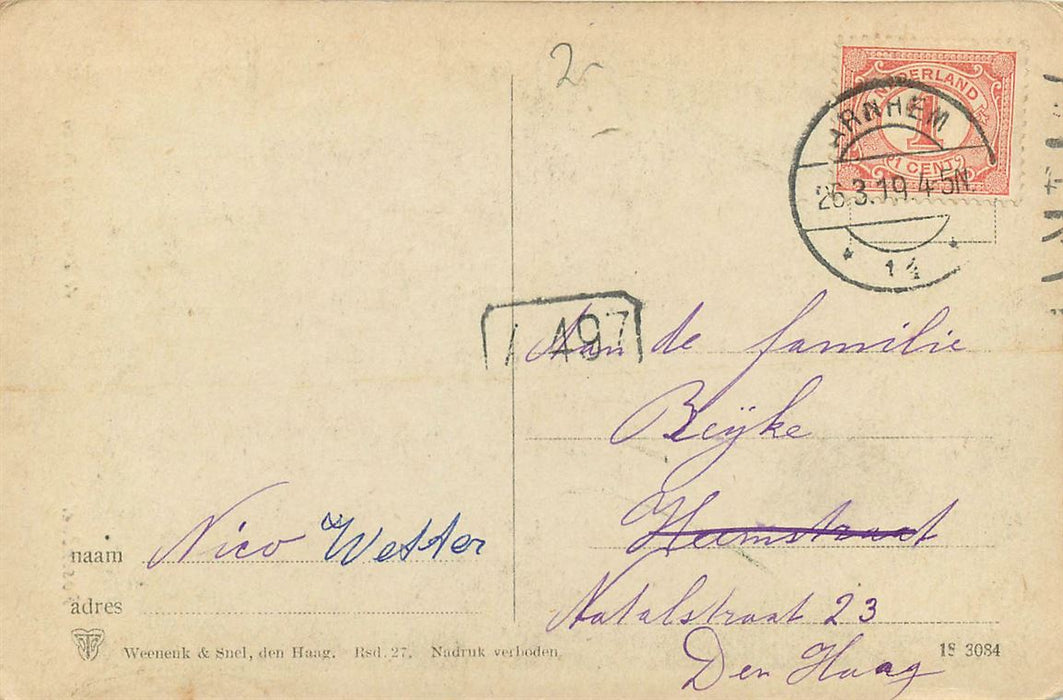 2-
NEDERLAND
1
1 CENT
ARNHEM
26.3.19 4-5N
* 14 *
497
Aan de familie
Beijke
Heemstraat
Natalstraat 23
Den Haag
naam Nico Wetter
adres
Weenenk & Snel, den Haag. Rsd. 27. Nadruk verboden
18 3084